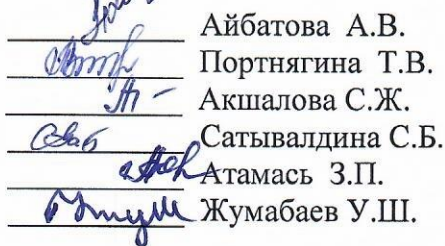 Айбатова А.В.
Портнягина Т.В.
Акшалова С.Ж.
Сатывалдина С.Б.
Атамась З.П.
Жумабаев У.Ш.